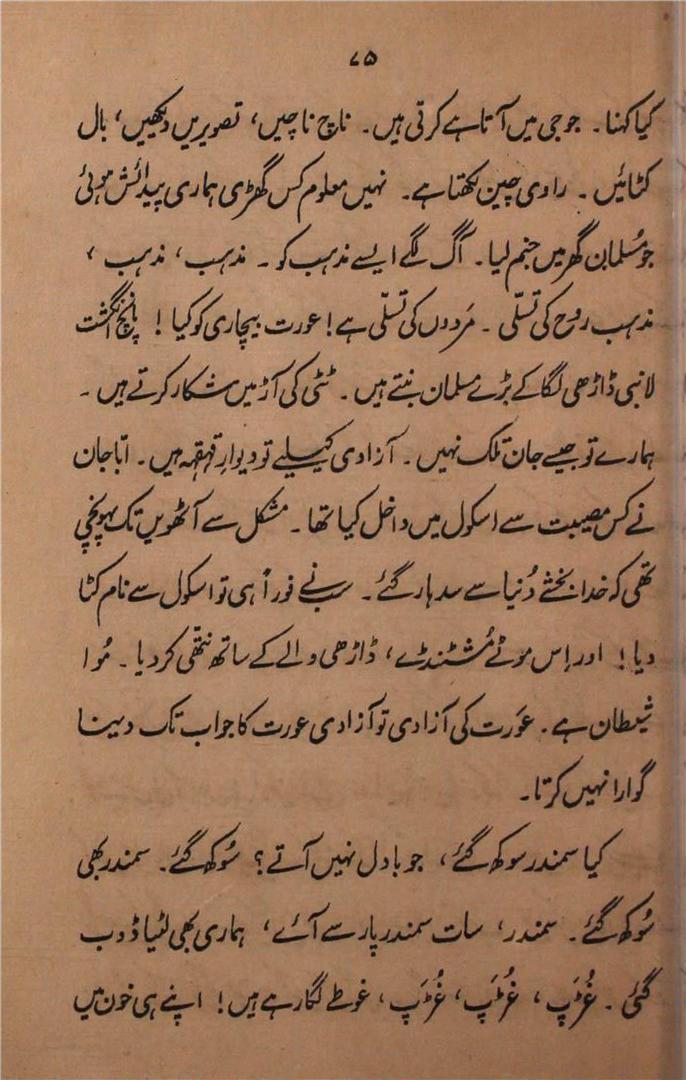 ۷۵
کیا کہنا۔ جو جی میں آتا ہے کرتی ہیں۔ ناچ ناچیں، تصویریں دیکھیں، بال
کٹائیں۔ راوی چین لکھتا ہے۔ نہیں معلوم کس گھڑی ہماری پیدائش ہوئی
جو مُسلمان گھر میں جنم لیا۔ آگ لگے ایسے مذہب کو۔ مذہب، مذہب،
مذہب روح کی تسلّی۔ مَردوں کی تسلّی ہے! عورت بیچاری کو کیا! پانچ انگشت
لانبی ڈاڑھی لگا کے بڑے مسلمان بنتے ہیں۔ ٹٹی کی آڑ میں شکار کرتے ہیں۔
ہمارے تو جیسے جان تلک نہیں۔ آزادی کیلیے تو دیوارِ قہقہہ ہیں۔ ابّا جان
نے کس مصیبت سے اسکول میں داخل کیا تھا۔ مشکل سے آٹھویں تک پہونچی
تھی کہ خدا بخشے دُنیا سے سدہار گئے۔ سب نے فوراً ہی تو اسکول سے نام کٹا
دیا! اور اِس موٹے مُشٹنڈے، ڈاڑھی والے کے ساتھ نتھی کر دیا۔ مُوا
شیطان ہے۔ عَورت کی آزادی تو آزادی عورت کا جواب تک دینا
گوارا نہیں کرتا۔
کیا سمندر سوکھ گئے، جو بادل نہیں آتے؟ سُوکھ گئے۔ سمندر بھی
سُوکھ گئے۔ سمندر، سات سمندر پار سے آئے، ہماری بھی لٹیا ڈوب
گئی۔ غُڑَپ، غُڑَپ، غُڑَپ، غوطے لگا رہے ہیں! اپنے ہی خون میں